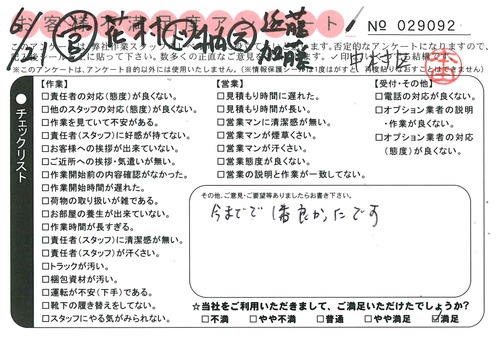 お客様満足度アンケート
№ 029092
このアンケートは、弊社作業スタッフ
否定的なアンケートになりますので、
※このアンケートは、アンケート目的以外には使用しません。(※情報保護シールは1度はがすと、再度貼りなおすことはできません)
中村区
近藤
加藤
チェックリスト
【作業】
□責任者の対応(態度)が良くない。
□他のスタッフの対応(態度)が良くない。
□作業を見ていて不安がある。
□責任者(スタッフ)に好感が持てない。
□お客様への挨拶が出来ていない。
□ご近所への挨拶・気遣いが無い。
□作業開始前の内容確認がなかった。
□作業開始時間が遅れた。
□荷物の取り扱いが雑である。
□お部屋の養生が出来ていない。
□作業時間が長すぎる。
□責任者(スタッフ)に清潔感が無い。
□責任者(スタッフ)が汗くさい。
□トラックが汚い。
□梱包資材が汚い。
□運転が不安(下手)である。
□靴下の履き替えをしてない。
□スタッフにやる気がみられない。
【営業】
□見積もり時間に遅れた。
□見積もり時間が長い。
□営業マンに清潔感が無い。
□営業マンが煙草くさい。
□営業マンが汗くさい。
□営業態度が良くない。
□営業の説明と作業が一致してない。
【受付・その他】
□電話の対応が良くない。
□オプション業者の説明
・作業が良くない。
□オプション業者の対応
(態度)が良くない。
その他、ご意見・ご要望等ありましたらお書き下さい。
今までで1番良かったです
☆当社をご利用いただきまして、ご満足いただけたでしょうか?
□不満 □やや不満 □普通 □やや満足 □満足